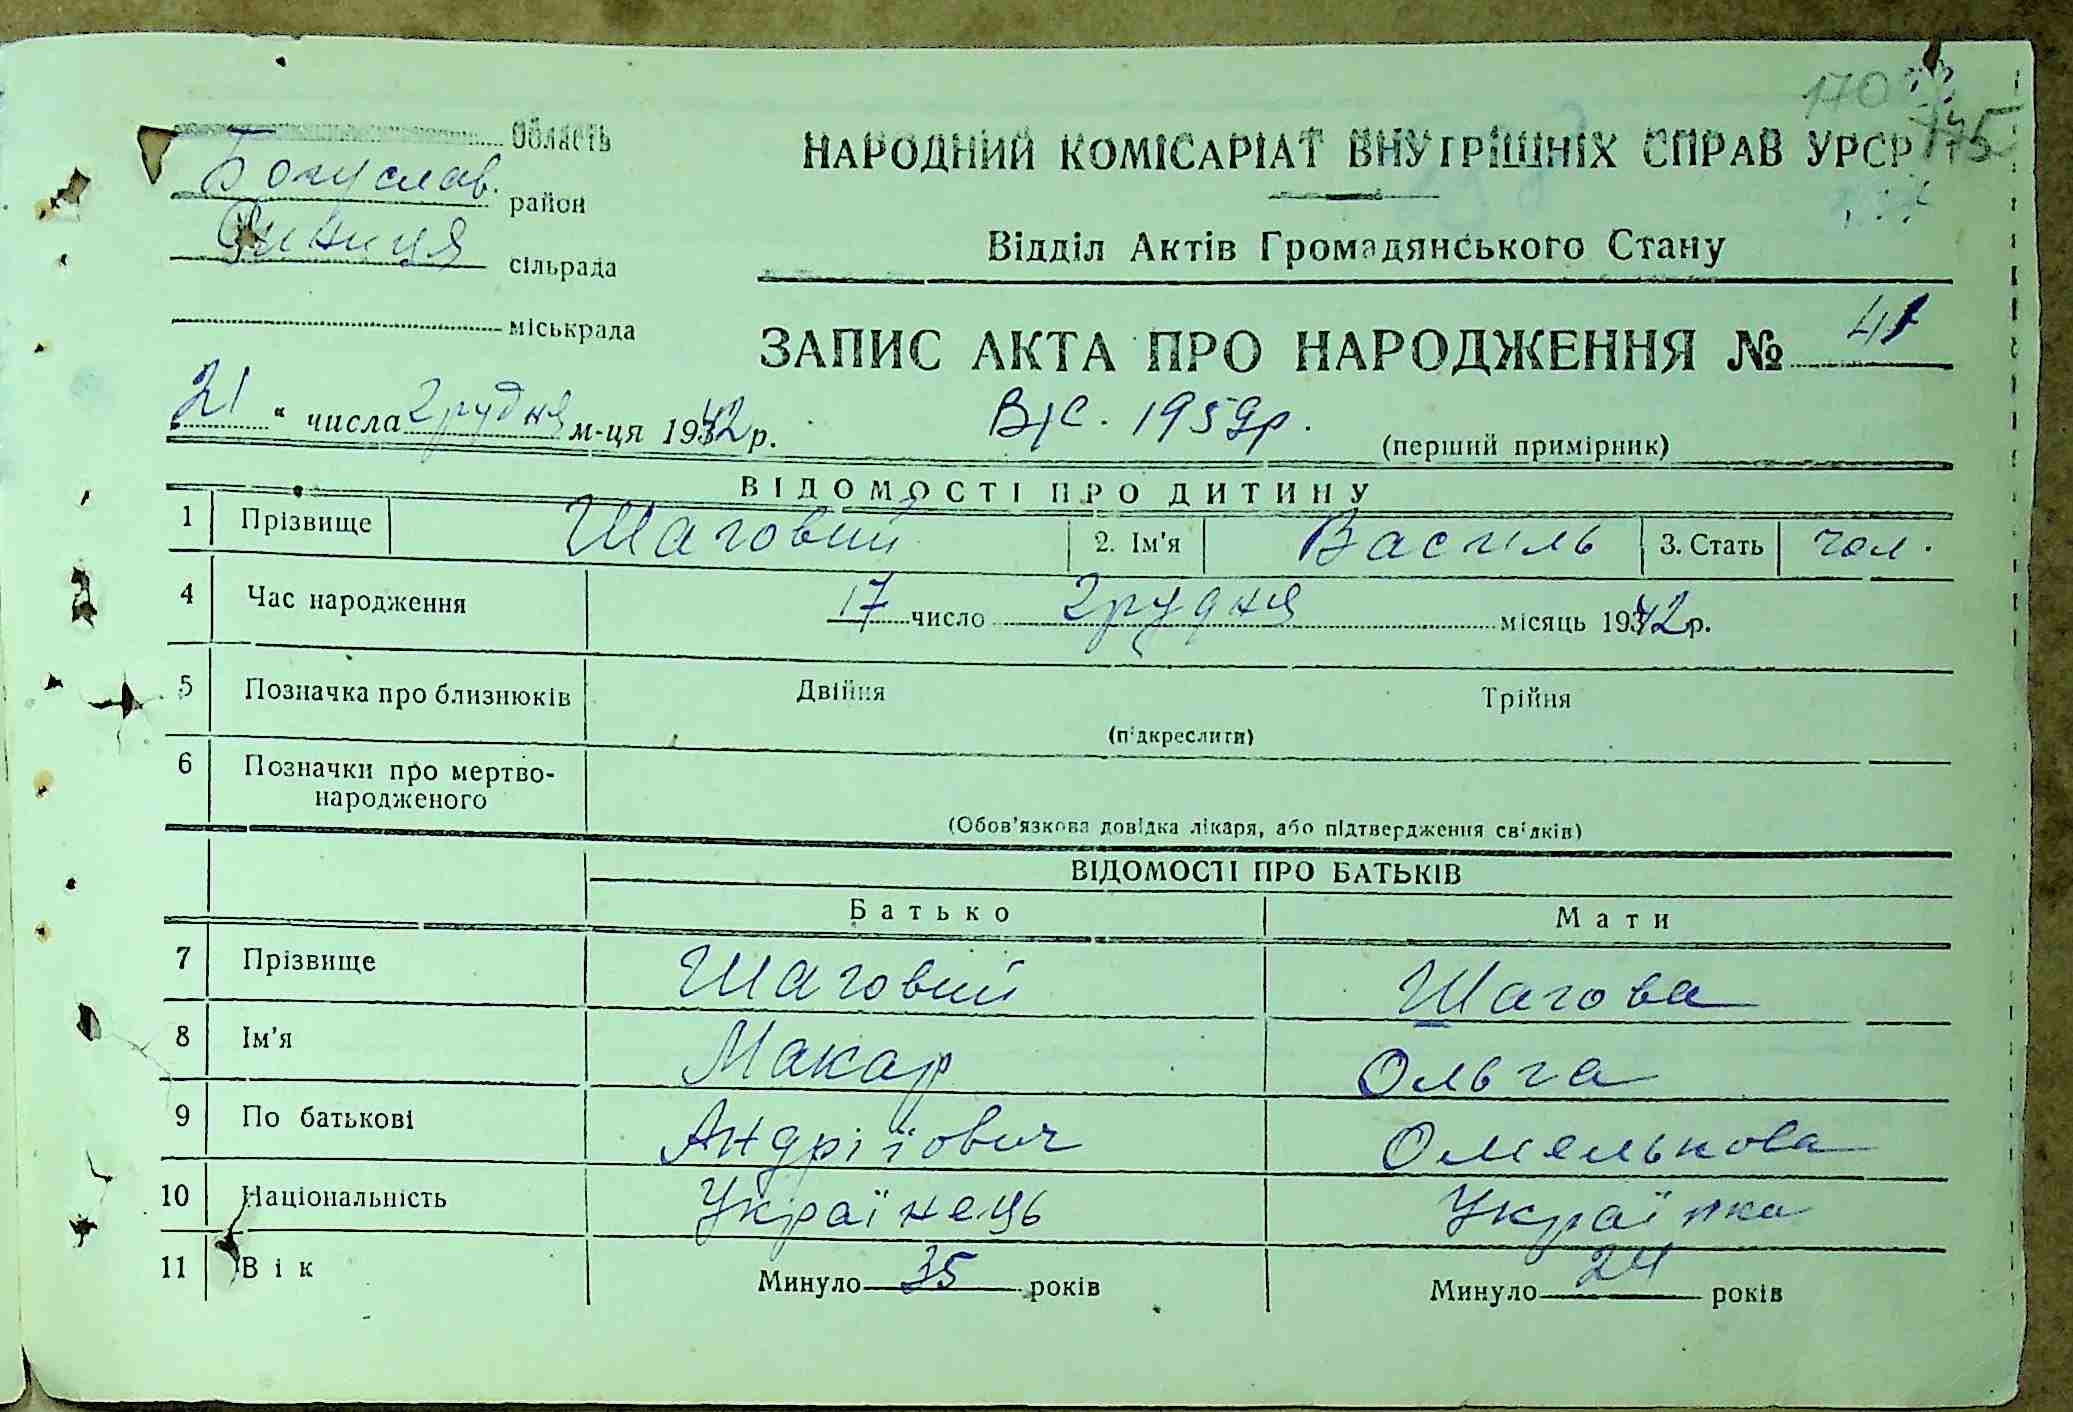 170
175
Область
НАРОДНИЙ КОМІСАРІАТ ВНУТРІШНІХ СПРАВ УРСР
Богуслав. район
Відділ Актів Громадянського Стану
сільрада
міськрада
ЗАПИС АКТА ПРО НАРОДЖЕННЯ № 41
21 " числа грудня м-ця 1942 р.
В/С. 1959р.
(перший примірник)
ВІДОМОСТІ ПРО ДИТИНУ
1 Прізвище Шаговий 2. Ім'я Василь 3. Стать чол.
4 Час народження 17 число грудня місяць 1942 р.
5 Позначка про близнюків Двійня Трійня
(підкреслити)
6 Позначки про мертво-
народженого
(Обов'язкова довідка лікаря, або підтвердження свідків)
ВІДОМОСТІ ПРО БАТЬКІВ
Батько Мати
7 Прізвище Шаговий Шагова
8 Ім'я Макар Ольга
9 По батькові Андріїович Омелькова
10 Національність Українець Українка
11 Вік Минуло 35 років Минуло 24 років